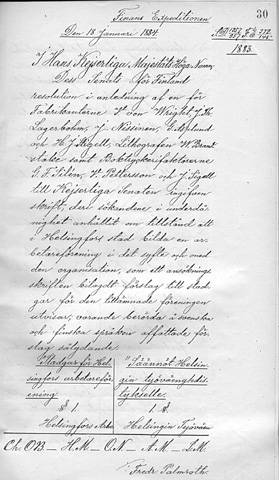 Finans Expeditionen
30
Den 18 Januari 1884.
1883.
I Hans Kejserliga Majestäts Höga Namn,
Dess Senats för Finland
resolution i anledning af en för
Fabrikanterne V. von Wright, J. Fr.
Lagerbohm, J. Nissinen, G. Asplund
och H. J. Stigell, Lithografen W. Brandt
samt Boktryckerifaktorerne
G. F. Tilén, V. Pettersson och J. Sigell
till Kejserliga Senaten ingifven
skrift, deri sökandne i underdå-
nighet anhållit om tillstånd att
i Helsingfors stad bilda en ar-
betareförening i det syfte och med
den organisation, som ett ansöknings
skriften bilagdt förslag till stad-
gar för den tillämnade föreningen
utvisar, varande berörda å svenska
och finska språken affattade för-
slag sålydande:
Stadgar för Hel-
singfors arbetareför-
ening
§ 1.
Helsingfors Arbe-
"Säännöt Helsin-
gin työväenyhdis-
tykselle.
1. §.
Helsingin Työväen
Ch. OB — H. M — O. N — A. M — L. M.
Fredr Palmroth.